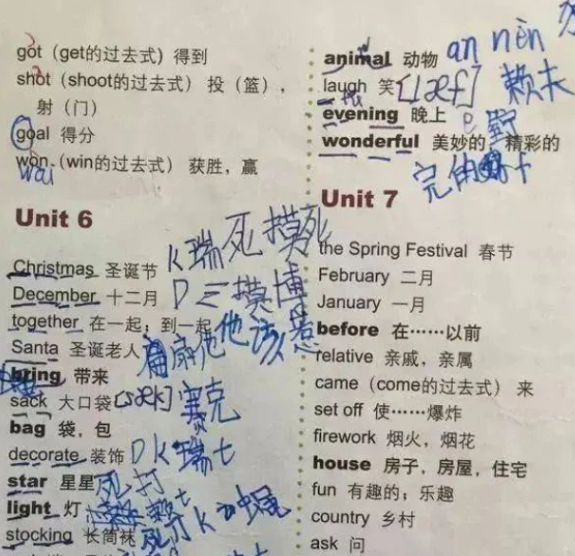 got (get的过去式) 得到
shot (shoot的过去式) 投（篮），
射（门）
goal 得分
won (win的过去式) 获胜，赢
wai
Unit 6
Christmas 圣诞节 K瑞死摸死
December 十二月 D三摸博
together 在一起；到一起
Santa 圣诞老人
bring 带来
sack 大口袋 [sæk] 赛克
bag 袋，包
decorate 装饰 DK瑞t
star 星星 死打
light 灯
stocking 长筒袜
animal 动物 an nèn
laugh 笑 [læf] 赖夫
evening 晚上 e
wonderful 美妙的；精彩的
Unit 7
the Spring Festival 春节
February 二月
January 一月
before 在……以前
relative 亲戚，亲属
came (come的过去式) 来
set off 使……爆炸
firework 烟火，烟花
house 房子，房屋，住宅
fun 有趣的；乐趣
country 乡村
ask 问